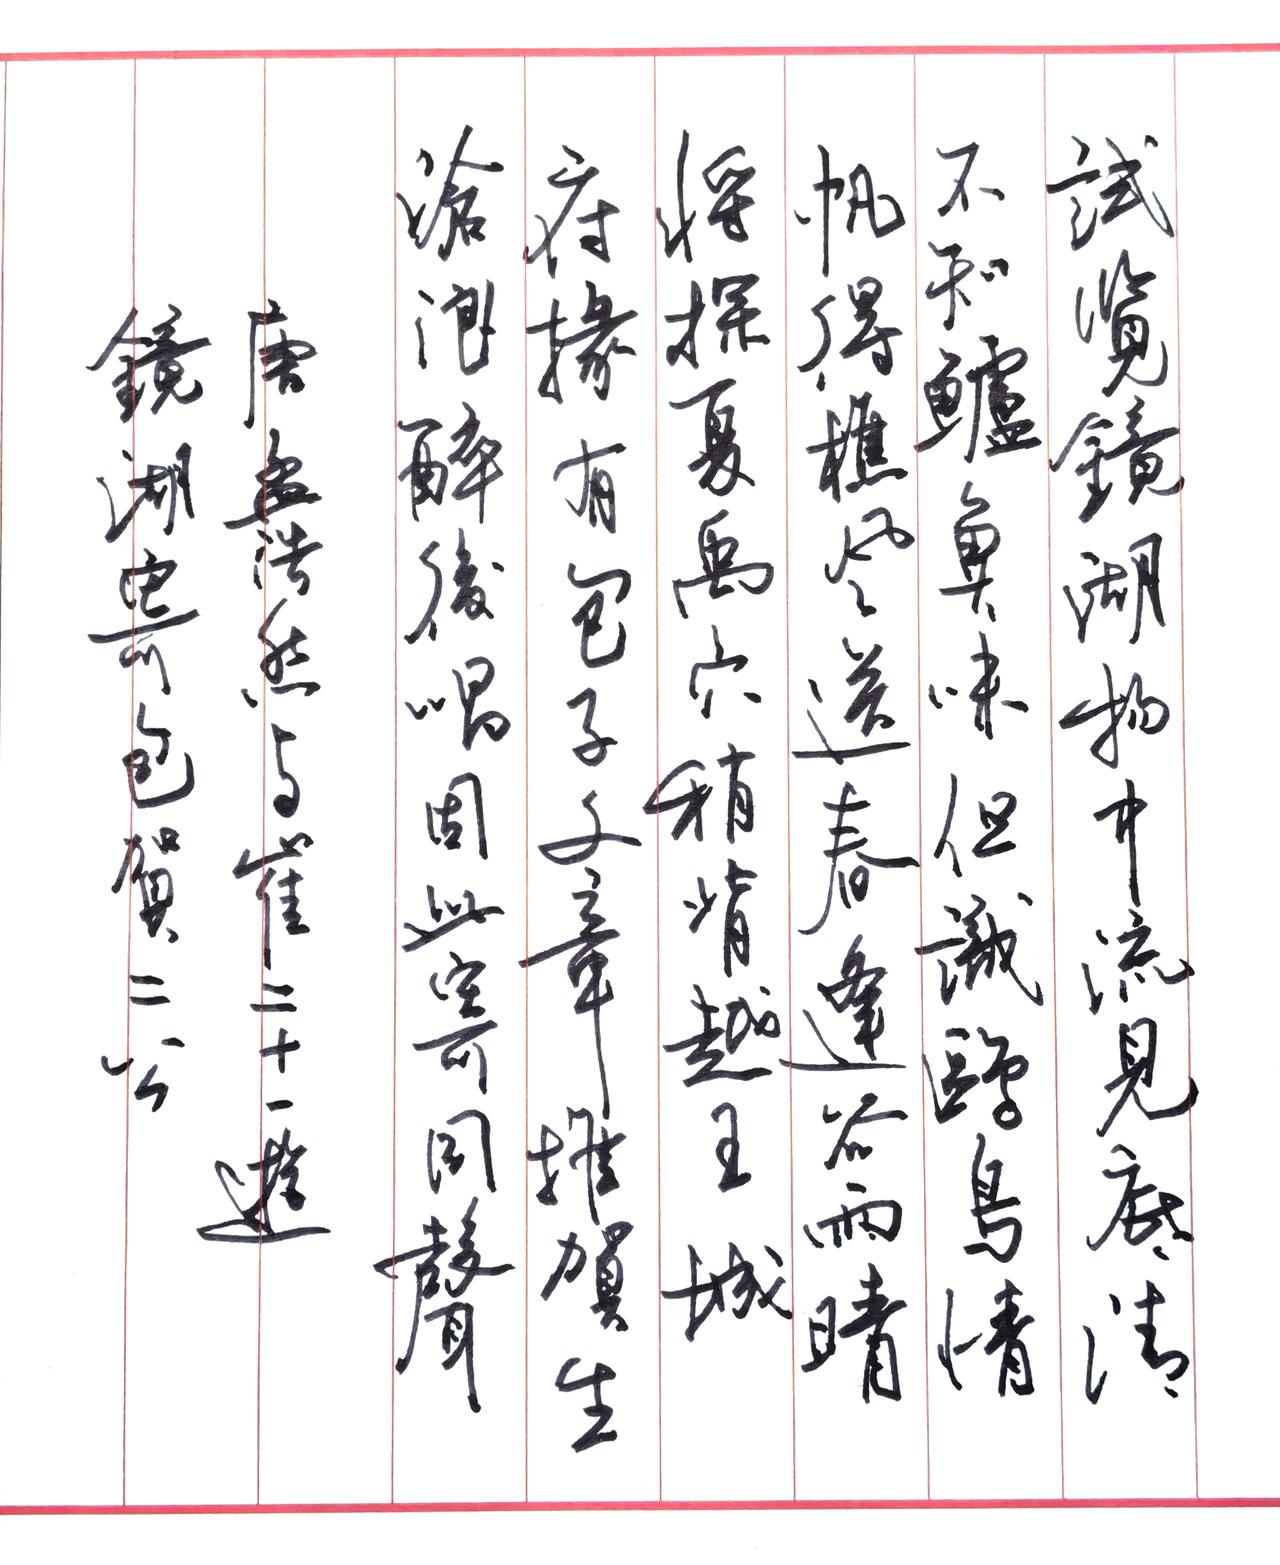 試覽鏡湖物中流見底清
不知鱸魚味但識鷗鳥情
帆得樵风送春逢谷雨晴
将探夏禹穴稍背越王城
府掾有包子文章推賀生
滄浪醉後唱因此寄同聲
唐孟浩然与崔二十一遊
鏡湖寄包賀二公